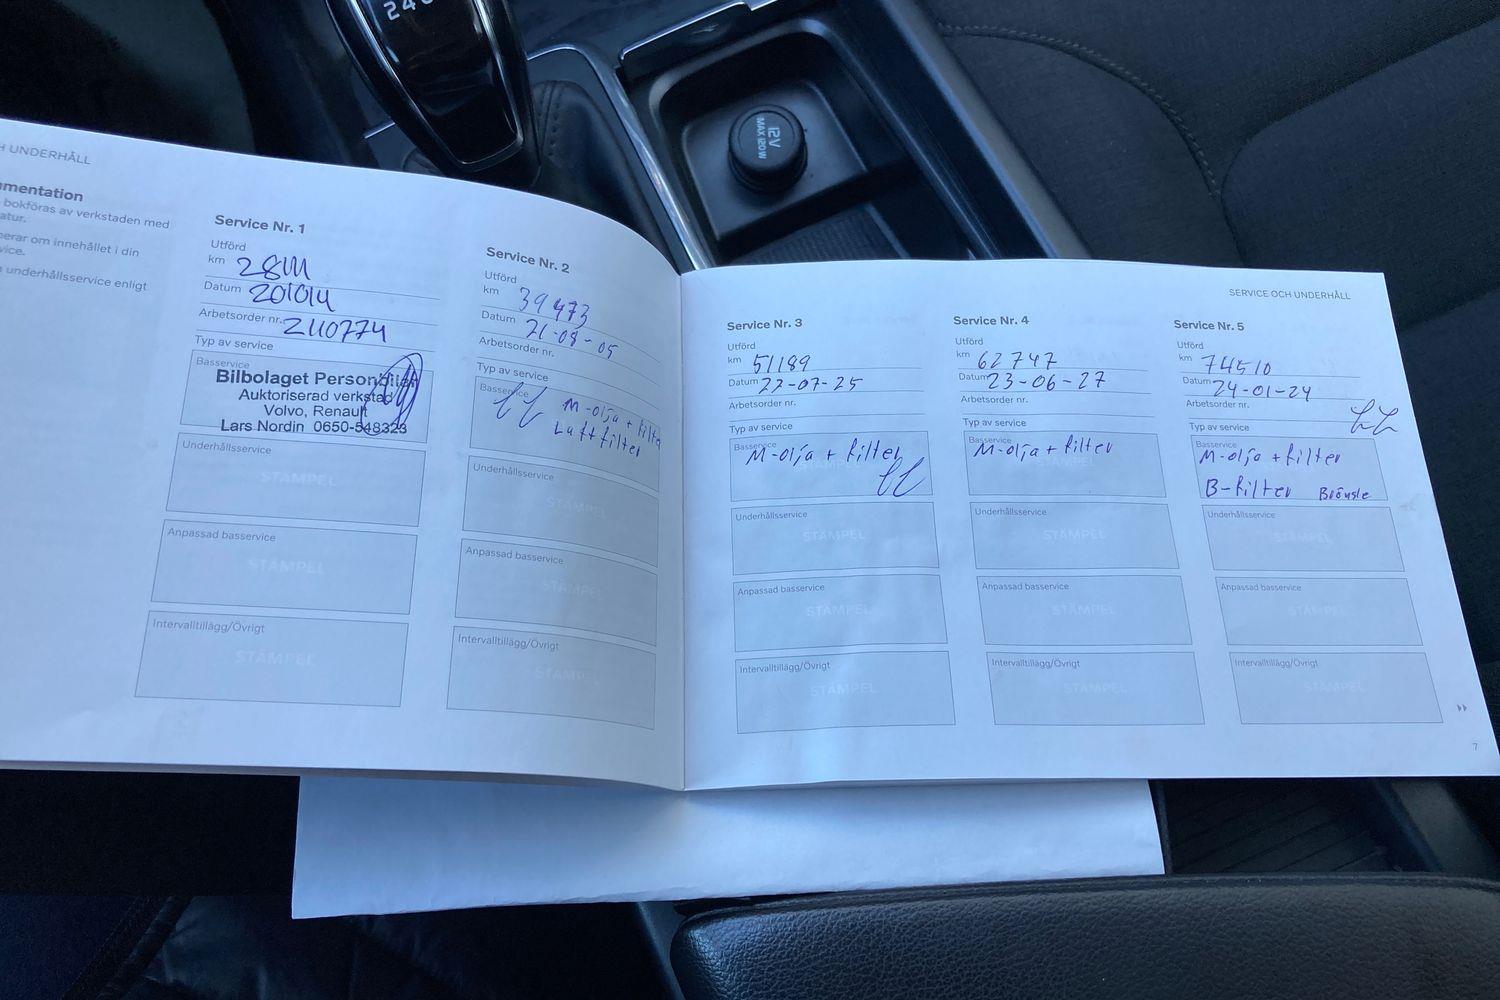 240
12V
MAX 120W
H UNDERHÅLL
mentation
bokföras av verkstaden med
atur.
nerar om innehållet i din
vice.
underhållsservice enligt
Service Nr. 1
Utförd
km
Datum 201014
Arbetsorder nr. 2110774
Typ av service
Basservice
Bilbolaget Personbilar
Auktoriserad verkstad
Volvo, Renault
Lars Nordin 0650-548323
Underhållsservice
STÄMPEL
Anpassad basservice
STÄMPEL
Intervalltillägg/Övrigt
STÄMPEL
Service Nr. 2
Utförd
km 39473
Datum 21-08-05
Arbetsorder nr.
Typ av service
Basservice
M-olja + filter
Luftfilter
Underhållsservice
STÄMPEL
Anpassad basservice
STÄMPEL
Intervalltillägg/Övrigt
STÄMPEL
SERVICE OCH UNDERHÅLL
Service Nr. 3
Utförd
km 51189
Datum 22-07-25
Arbetsorder nr.
Typ av service
Basservice
M-olja + filter
STÄMPEL
Underhållsservice
STÄMPEL
Anpassad basservice
STÄMPEL
Intervalltillägg/Övrigt
STÄMPEL
Service Nr. 4
Utförd
km 62747
Datum 23-06-27
Arbetsorder nr.
Typ av service
Basservice
M-olja + filter
STÄMPEL
Underhållsservice
STÄMPEL
Anpassad basservice
STÄMPEL
Intervalltillägg/Övrigt
STÄMPEL
Service Nr. 5
Utförd
km 74510
Datum 24-01-24
Arbetsorder nr.
Typ av service
Basservice
M-olja + filter
B-filter Bränsle
Underhållsservice
STÄMPEL
Anpassad basservice
STÄMPEL
Intervalltillägg/Övrigt
STÄMPEL
7